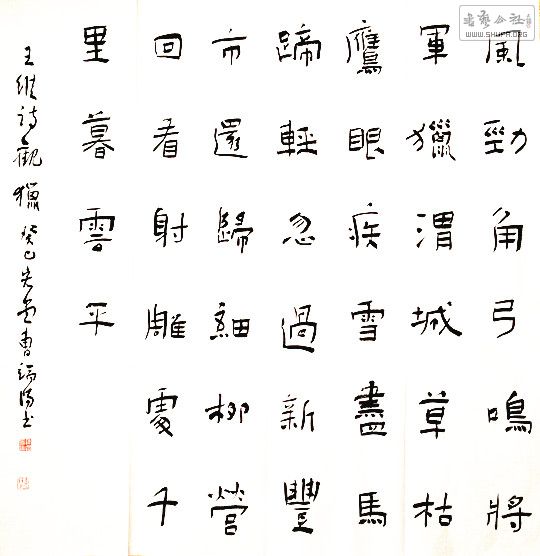 風勁角弓鳴將
軍獵渭城草枯
鷹眼疾雪盡馬
蹄輕忽過新豐
市還歸細柳營
回看射雕處千
里暮雲平
王維詩觀獵 癸巳 曹端陽書
书艺公社
WWW.SHUFA.ORG